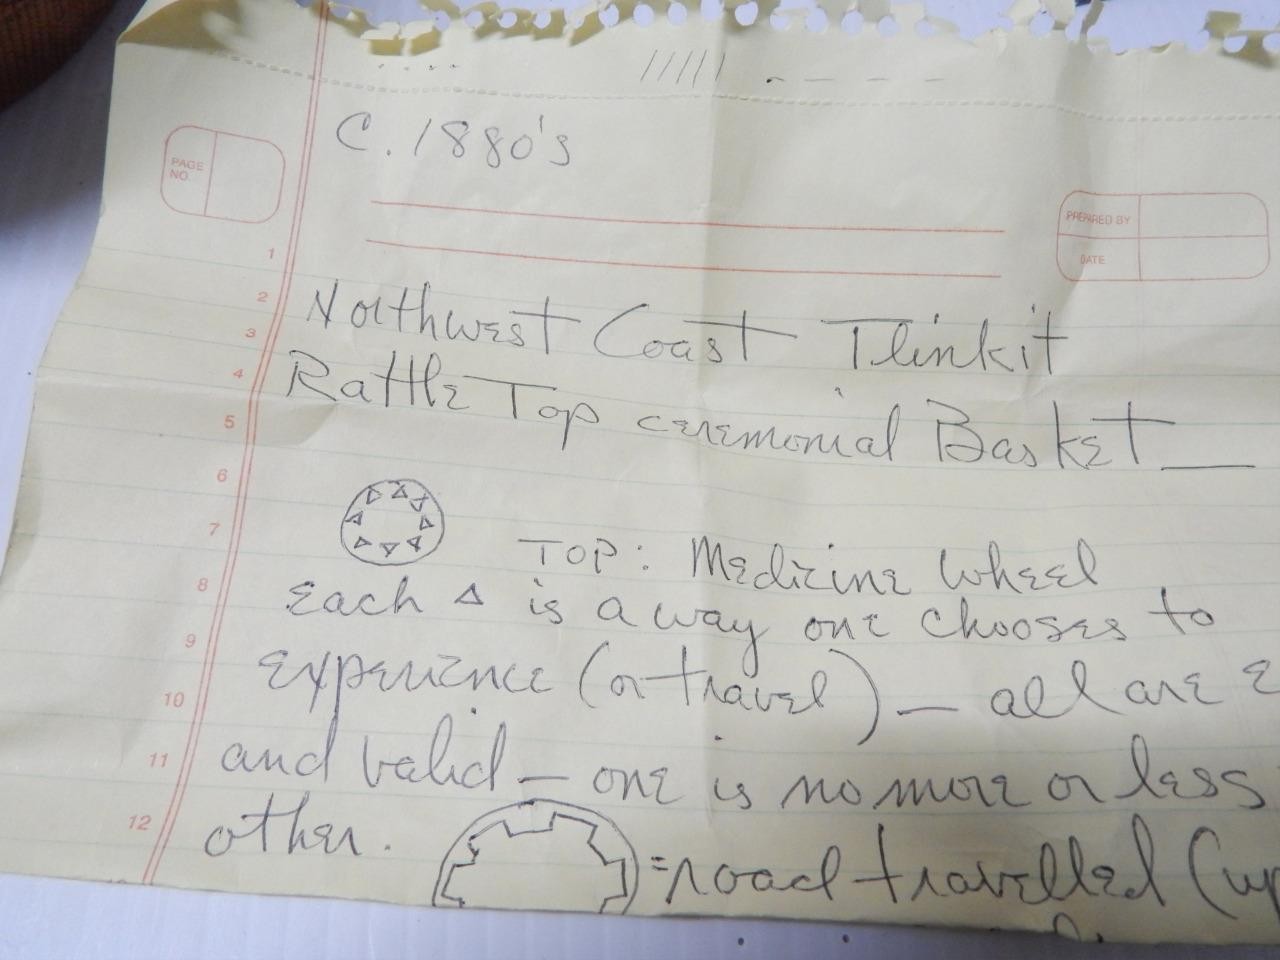 C. 1880's
PAGE NO.
PREPARED BY
DATE
1
2
3
4
5
6
7
8
9
10
11
12
Northwest Coast Tlinkit
Rattle Top ceremonial Basket —
TOP: Medicine Wheel
Each △ is a way one chooses to
experience (or travel) — all are
and valid — one is no more or less
other.
= road travelled (up